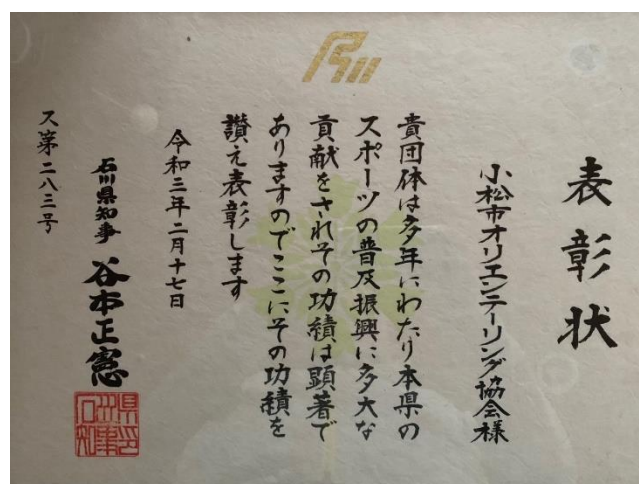 表彰状
小松市オリエンテーリング協会様
貴団体は多年にわたり本県の
スポーツの普及振興に多大な
貢献をされその功績は顕著で
ありますのでここにその功績を
讃え表彰します
令和三年二月十七日
石川県知事 谷本正憲
ス第二八三号